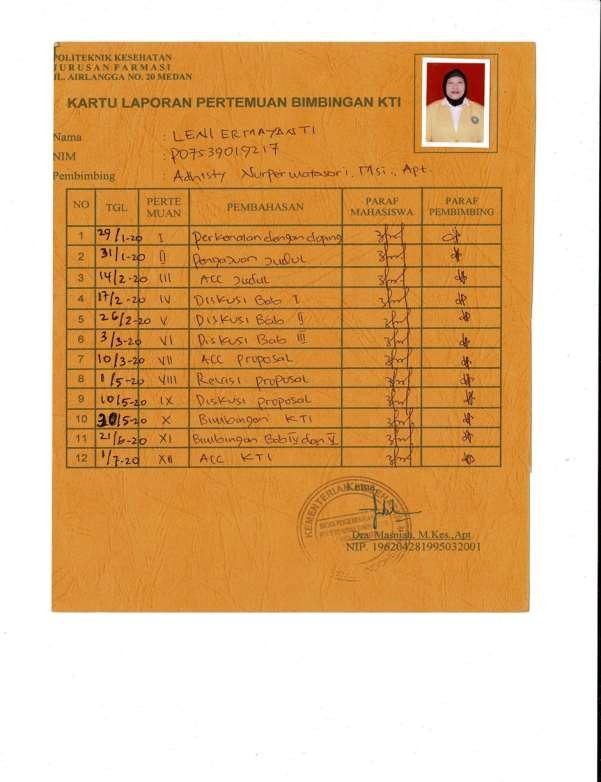 POLITEKNIK KESEHATAN
JURUSAN FARMASI
JL. AIRLANGGA NO. 20 MEDAN
KARTU LAPORAN PERTEMUAN BIMBINGAN KTI
Nama : LENI ERMAYANTI
NIM : P07539019217
Pembimbing : Adhisty Nurpermatasari, Msi., Apt.
NO TGL PERTEMUAN PEMBAHASAN PARAF MAHASISWA PARAF PEMBIMBING
1 29/1-20 I Perkenalan dengan doping
2 31/1-20 II Pengajuan Judul
3 14/2-20 III ACC Judul
4 17/2-20 IV Diskusi Bab I
5 26/2-20 V Diskusi Bab II
6 3/3-20 VI Diskusi Bab III
7 10/3-20 VII ACC Proposal
8 1/5-20 VIII Revisi Proposal
9 10/5-20 IX Diskusi proposal
10 30/5-20 X Bimbingan KTI
11 21/6-20 XI Bimbingan Bab IV dan V
12 1/7-20 XII ACC KTI
Ketua
KEMENTERIAN
Dra. Masniah, M.Kes.,Apt
NIP. 196204281995032001